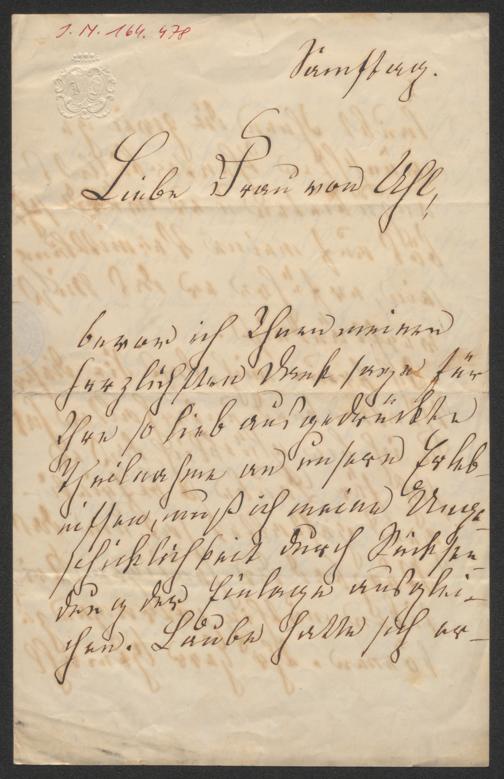 J. N. 164.478
Samstag.
Liebe Frau von Uhl,
bevor ich Ihnen meinen
herzlichsten Dank sage für
Ihre so lieb ausgedrückte
Theilnahme an unsern Erleb-
nissen, muß ich meine Unge-
schicklichkeit durch Rücksen
dung der Einlage ausglei-
chen. Laube hatte sich er-